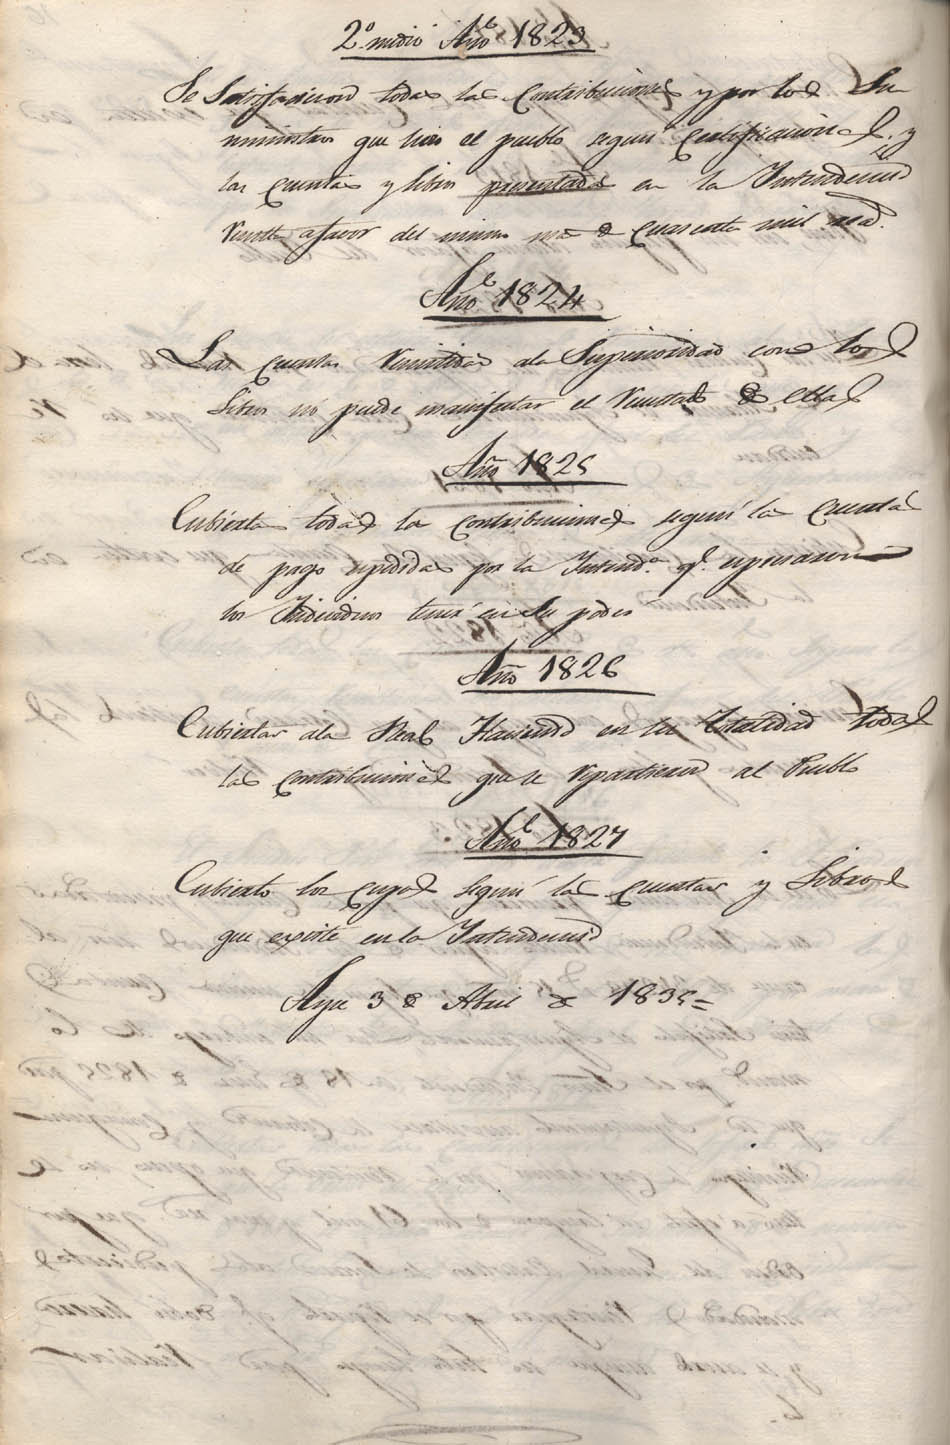 2º medio Año 1823
Se Satisfacieron todas las Contribuciones y por los Su
ministros que hizo el pueblo segun Certificaciones y
las cuentas y libro presentadas en la Intendencia
Resulta afavor del mismo mas de cuarenta mil rea.s
Año 1824
Las cuentas Remitidas ala Superioridad con los
libros no puede manifestar el Resultado de ellas
Año 1825
Cubiertas todas las contribuciones segun las cuentas
de pago espedidas por la Intend.a q.e
los Individuos tenia en Su poder
Año 1826
Cubiertas ala Real Hacienda en su totalidad todas
las contribuciones que se Repartieron al Pueblo
Año 1827
Cubierto los cupos segun las cuentas y Libros
que existe en la Intendencia
3 de Abril de 1835=